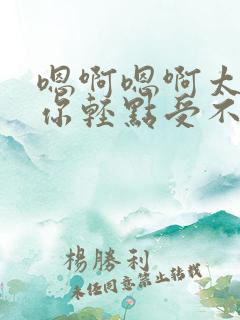 嗯啊嗯啊太
你轻點受不
楊勝利
未任同意禁止转载